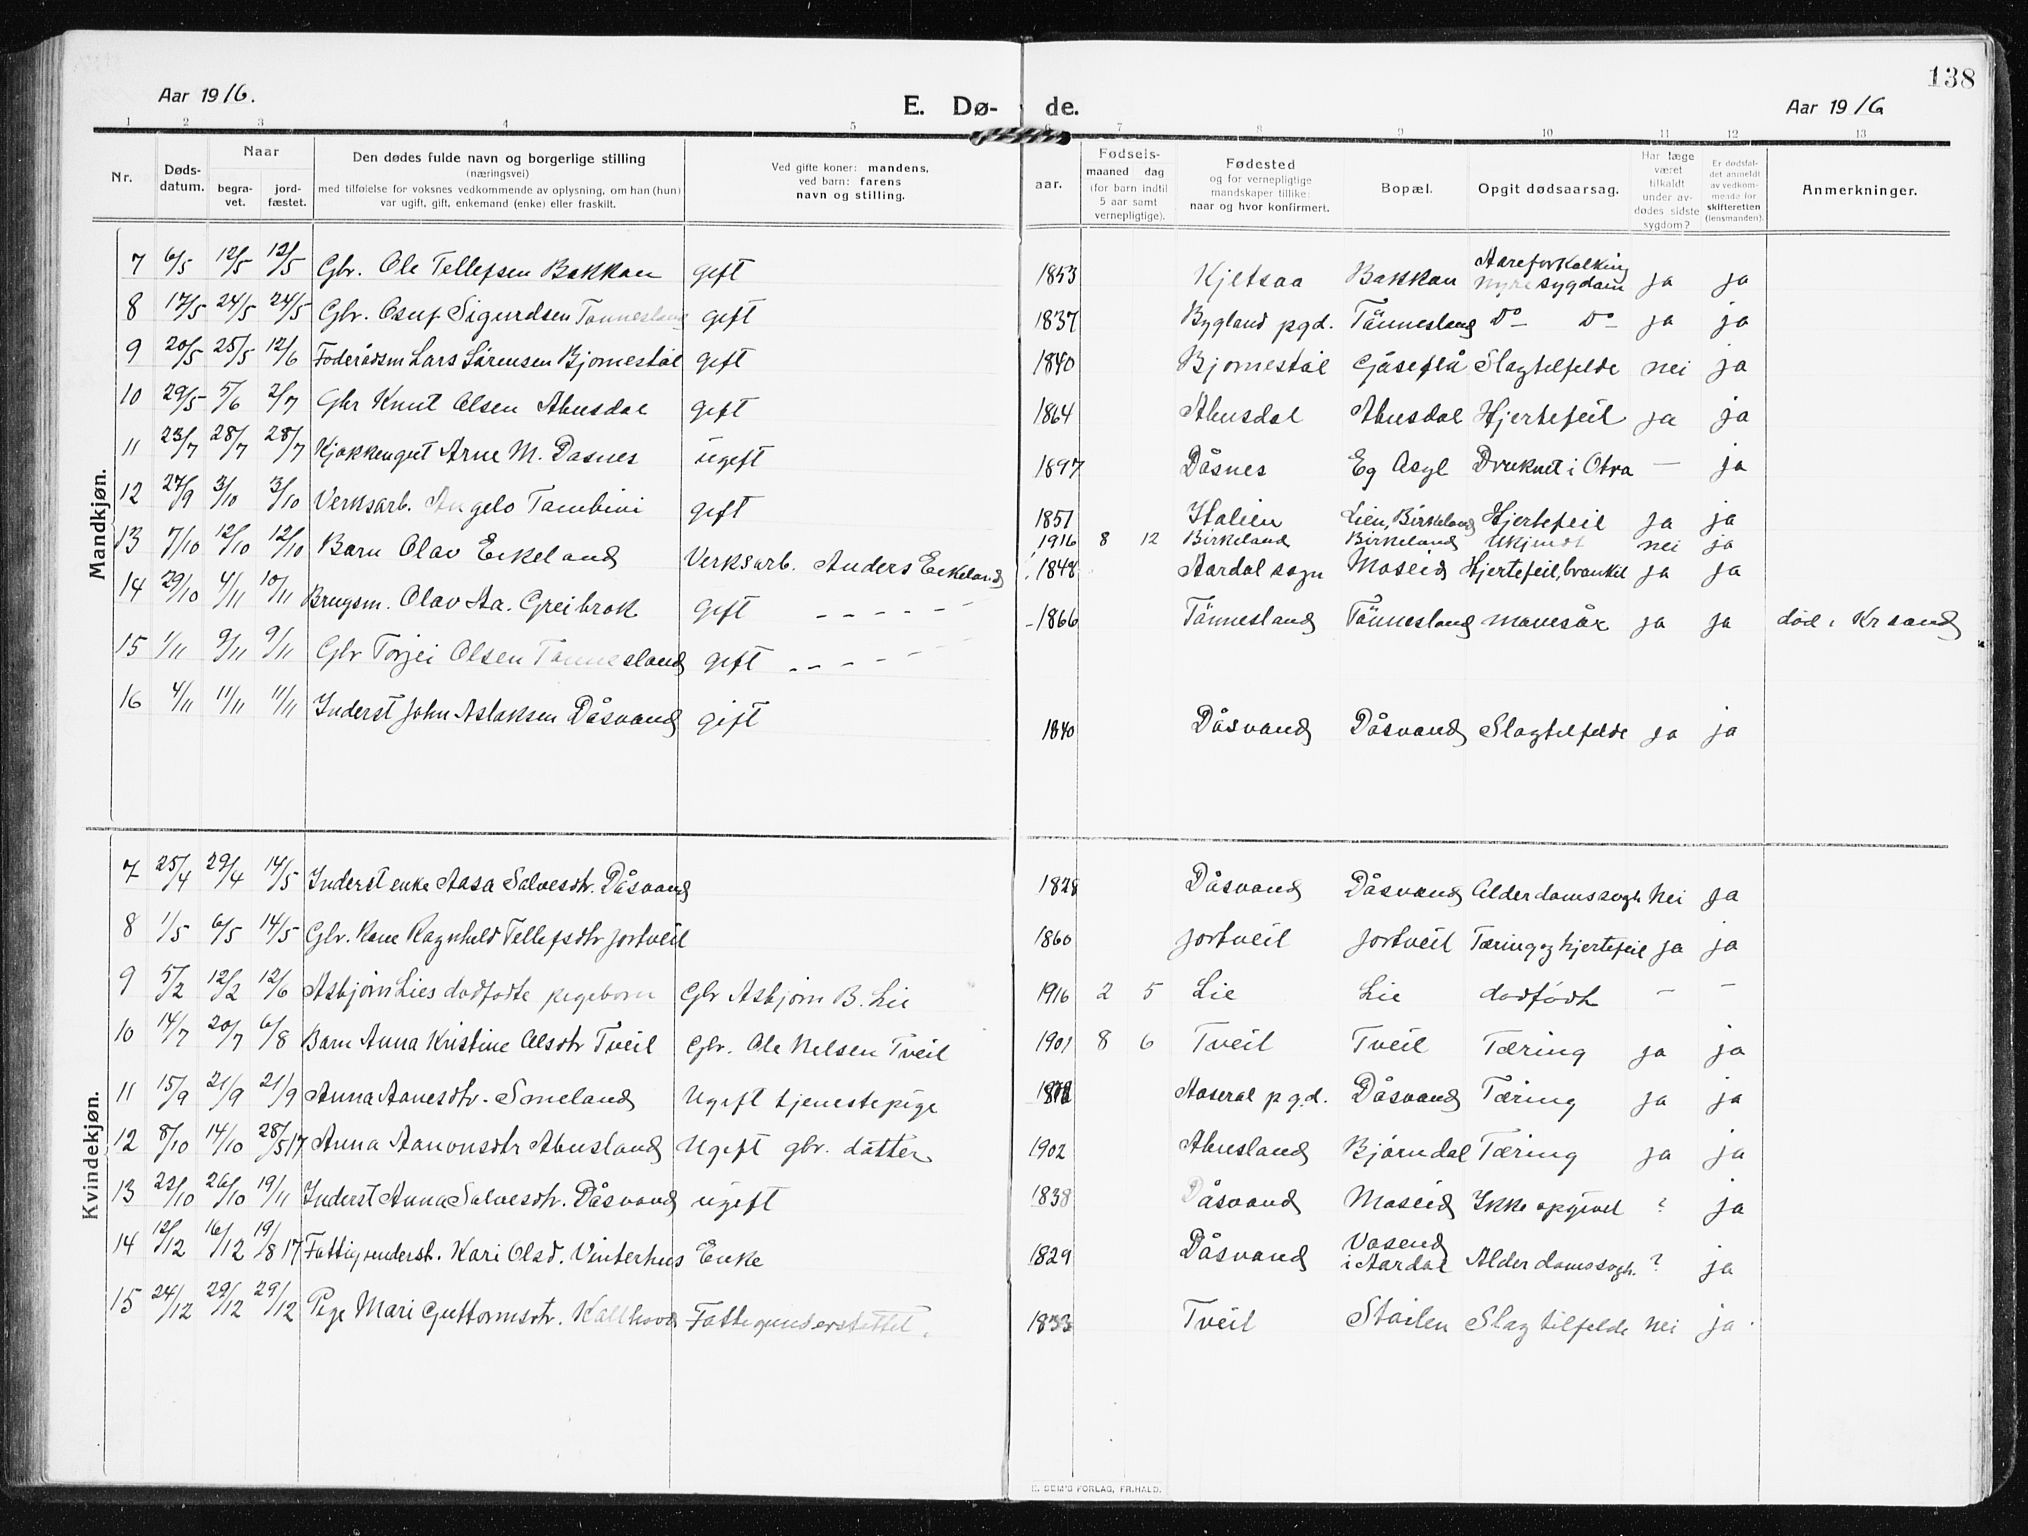 138
Aar 1916.
E. Dø- de.
Aar 1916
1 2 3 4 5 6 7 8 9 10 11 12 13
Nr.
Døds-datum.
Naar
begra-vet.
jord-fæstet.
Den dødes fulde navn og borgerlige stilling
(næringsvei)
med tilføielse for voksnes vedkommende av oplysning, om han (hun)
var ugift, gift, enkemand (enke) eller fraskilt.
Ved gifte koner: mandens,
ved barn: farens
navn og stilling.
Fødsels-
aar.
maaned dag
(for barn indtil
5 aar samt
vernepligtige).
Fødested
og for vernepligtige
mandskaper tillike:
naar og hvor konfirmert.
Bopæl.
Opgit dødsaarsag.
Har læge
været
tilkaldt
under av-
dødes sidste
sygdom?
Er dødsfal-
det anmeldt
av vedkom-
mende for
skifteretten
(lensmanden).
Anmerkninger.
Mandkjøn.
7 6/5 12/5 12/5 Gbr. Ole Tellefsen Bakkan gift 1853 Kjetsaa Bakkan Aareforkalking nyresygdom ja ja
8 17/5 24/5 24/5 Gbr. Osuf Sigurdsen Tønnesland gift 1837 Bygland pgd. Tånnesland Do Do ja ja
9 20/5 25/5 12/6 Føderådsm Lars Sørensen Bjornestøl gift 1840 Bjornestøl Gåseflå Slagtilfelde nei ja
10 29/5 5/6 2/7 Gbr Knut Olsen Abusdal gift 1864 Abusdal Abusdal Hjertefeil ja ja
11 23/7 28/7 28/7 Kjøkkengut Arne M. Dasnes ugift 1897 Dåsnes Eg Asyl Druknet i Otra — ja
12 27/9 3/10 3/10 Verksarb. Angelo Tambini gift 1851 Italien Lien, Birkeland Hjertefeil ja ja
13 7/10 12/10 12/10 Barn Olav Eikeland Verksarb. Anders Eikeland 1916 8 12 Birkeland Birkeland Ukjendt nei ja
14 29/10 4/11 10/11 Brugsm. Olav Aa. Greibrok gift - - - - - - 1848 Aardal sogn Moseid Hjertefeil, bronkit ja ja
15 1/11 9/11 9/11 Gbr Torjei Olsen Tønnesland gift - - - - - - 1866 Tånnesland Tånnesland mavesår ja ja død i Kr sand
16 4/11 11/11 11/11 Inderst John Aslaksen Dåsvand gift 1840 Dåsvand Dåsvand Slagtilfelde ja ja
Kvindekjøn.
7 25/4 29/4 14/5 Inderst enke Aasa Salvesdtr. Dåsvand 1828 Dåsvand Dåsvand Alderdomssvgh. nei ja
8 1/5 6/5 14/5 Gbr. Kone Ragnhild Tellefsdtr Jortveit 1860 Jortveit Jortveit Tæring og hjertefeil ja ja
9 5/2 12/2 12/6 Asbjørn Lies dødfødte pigebarn Gbr Asbjørn B. Lie 1916 2 5 Lie Lie dødfødt — —
10 14/7 20/7 6/8 Barn Anna Kristine Olsdtr Tveit Gbr. Ole Nilsen Tveit 1901 8 6 Tveit Tveit Tæring ja ja
11 15/9 21/9 21/9 Anna Aanesdtr. Smeland Ugift tjenestepige Aaseral pgd. Dåsvand Tæring ja ja
12 8/10 14/10 28/5 17 Anna Aanonsdtr Abusland Ugift gbr. datter 1902 Abusland Bjørndal Tæring ja ja
13 22/10 26/10 19/11 Inderst Anna Salvesdtr. Dåsvand ugift 1838 Dåsvand Moseid Ikke opgivet ? ja
14 12/12 16/12 19/8 17 Fattigunderst. Kari Olsd. Vinterhus Enke 1829 Dåsvand Vasend i Aardal Alderdomssvgh. ? ja
15 24/12 29/12 29/12 Pige Mari Guttormsdtr. Kalthovd Fattigunderstøttet. 1833 Tveit Støilen Slagtilfelde nei ja
E. SEM'S FORLAG, FR.HALD.